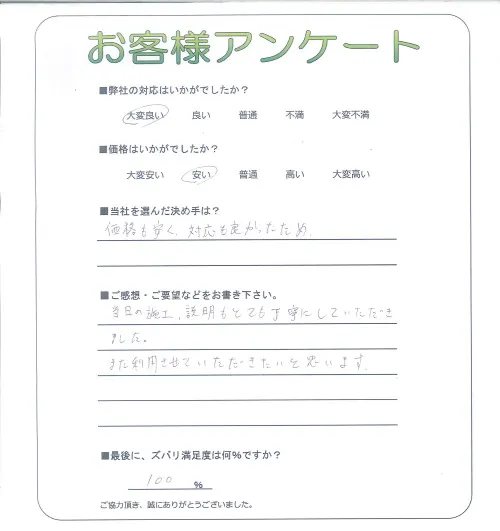 お客様アンケート
■弊社の対応はいかがでしたか？
大変良い 良い 普通 不満 大変不満
■価格はいかがでしたか？
大変安い 安い 普通 高い 大変高い
■当社を選んだ決め手は？
価格も安く、対応も良かったため.
■ご感想・ご要望などをお書き下さい。
当日の施工、説明もとても丁寧にしていただき
ました。
また利用させていただきたいと思います.
■最後に、ズバリ満足度は何%ですか？
100 %
ご協力頂き、誠にありがとうございました。